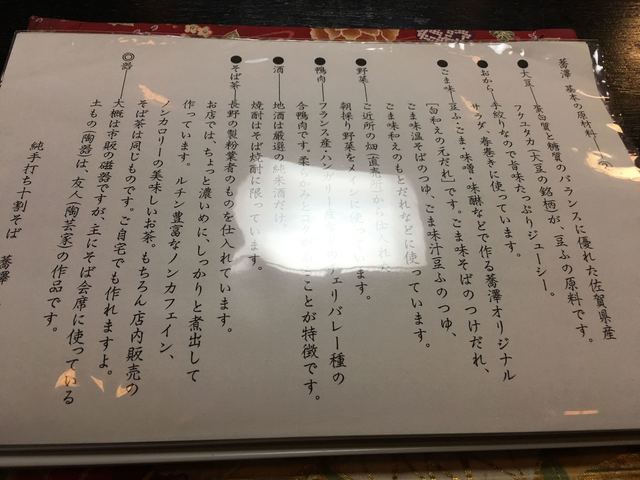 蕎澤 基本の原材料
●大豆――蛋白質と糖質のバランスに優れた佐賀県産
フクユタカ(大豆の銘柄)が、豆ふの原料です。
●おから――手絞りなので旨味たっぷりジューシー。
サラダ、春巻きに使っています。
●ごま味――豆ふ・ごま・味噌・味醂などで作る蕎澤オリジナル
[白和えの元だれ]です。ごま味そばのつけだれ、
ごま味温そばのつゆ、ごま味汁豆ふのつゆ、
ごま味和えのもとだれなどに使っています。
●野菜――ご近所の畑(直売所)から仕入れた
朝採り野菜をメインに使っています。
●鴨肉――フランス産・ハンガリー産のチェリバレー種の
合鴨肉です。柔らかみとコクがあることが特徴です。
●酒――地酒は厳選の純米酒だけ、
焼酎はそば焼酎に限っています。
●そば茶――長野の製粉業者のものを仕入れています。
お店では、ちょっと濃いめに、しっかりと煮出して
作っています。ルチン豊富なノンカフェイン、
ノンカロリーの美味しいお茶。もちろん店内販売の
そば茶は同じものです。ご自宅でも作れますよ。
◎器――大概は市販の磁器ですが、主にそば会席に使っている
土もの(陶器)は、友人(陶芸家)の作品です。
純手打ち十割そば 蕎澤